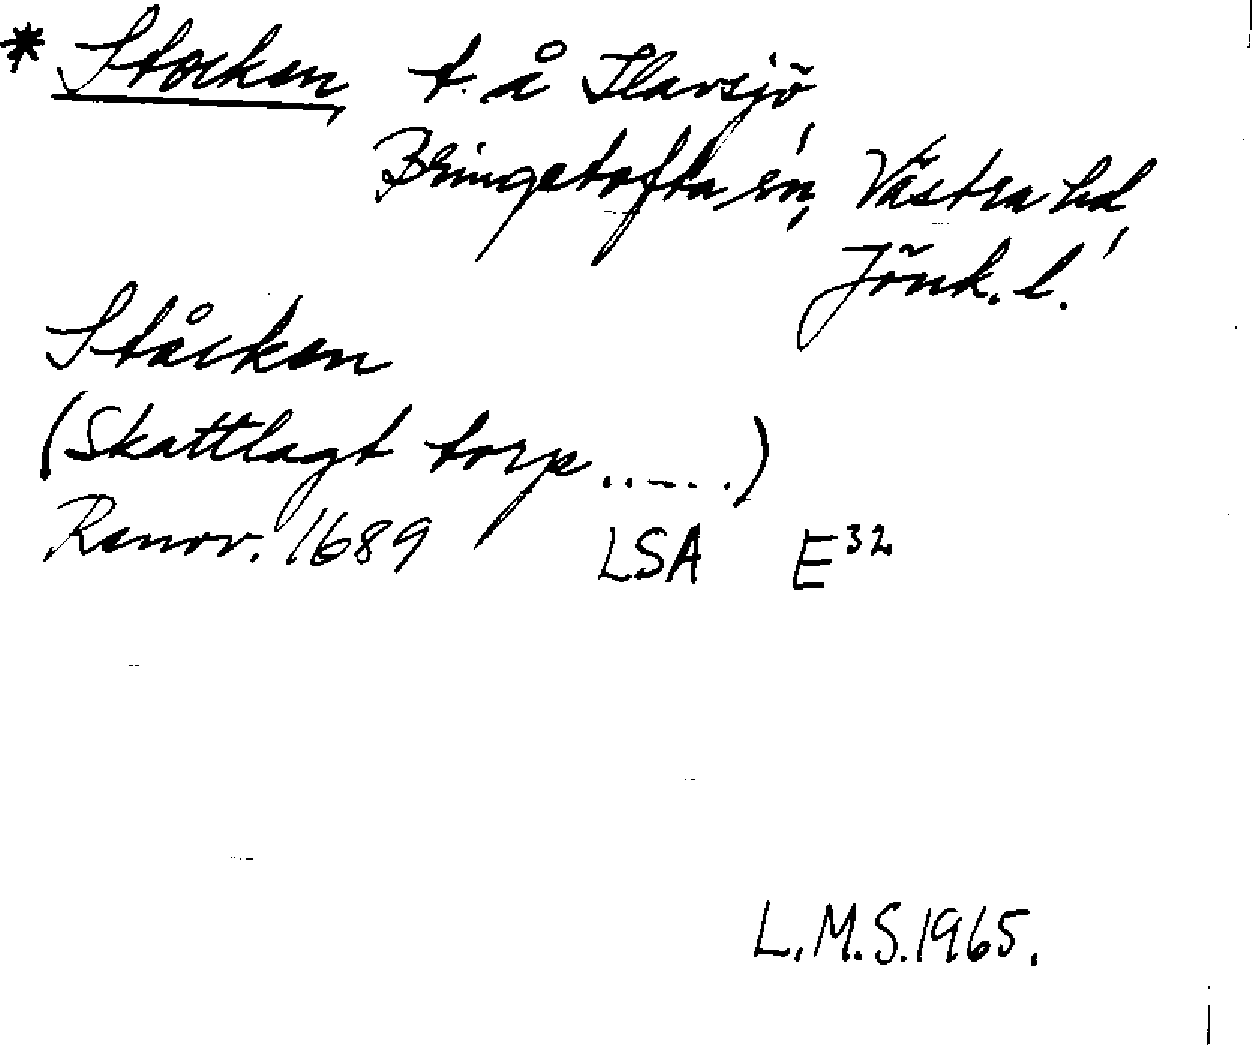 * Stocken, t. å Ilavsjö,
Bringetofta sn, Västra hd,
Jönk. l.
Ståcken
(Skattlagt torp ......)
Renov. 1689 LSA E32
L.M.S. 1965.